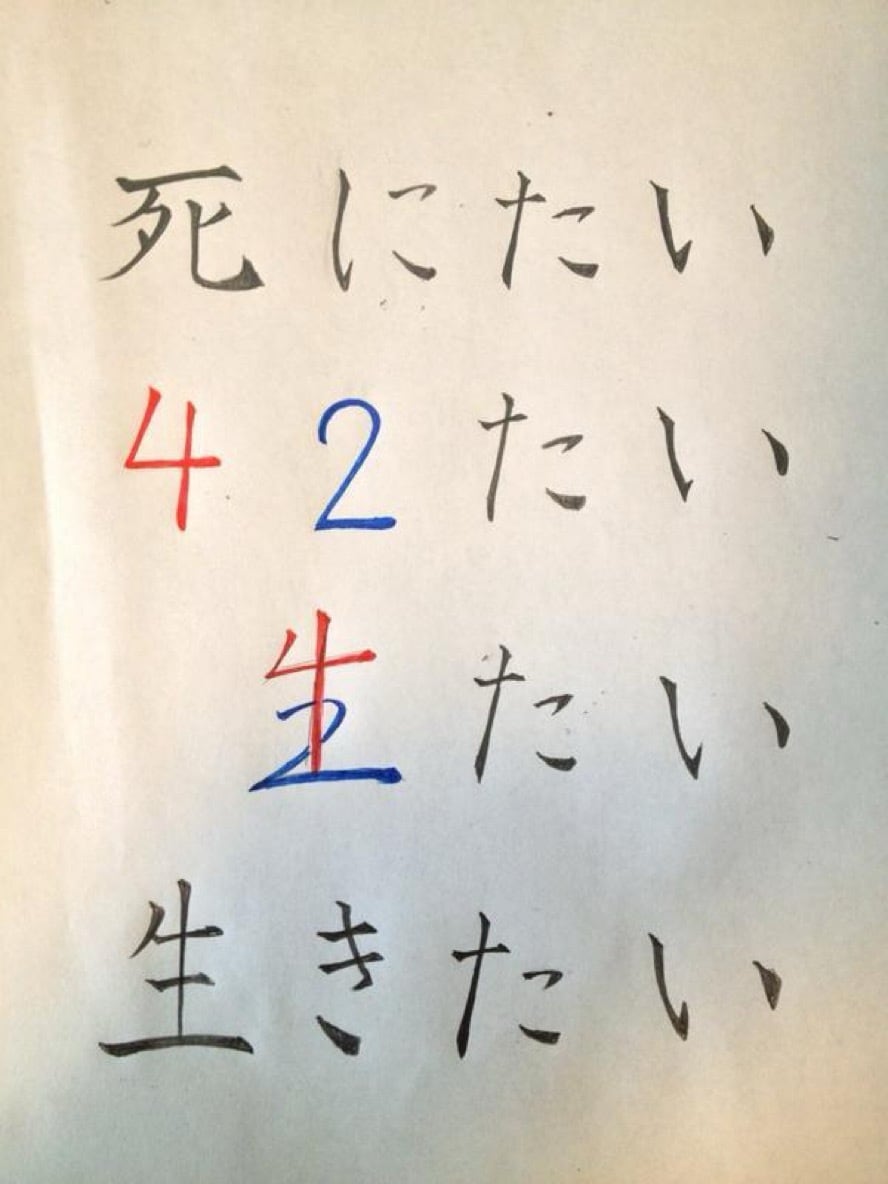 死にたい
42たい
生たい
生きたい